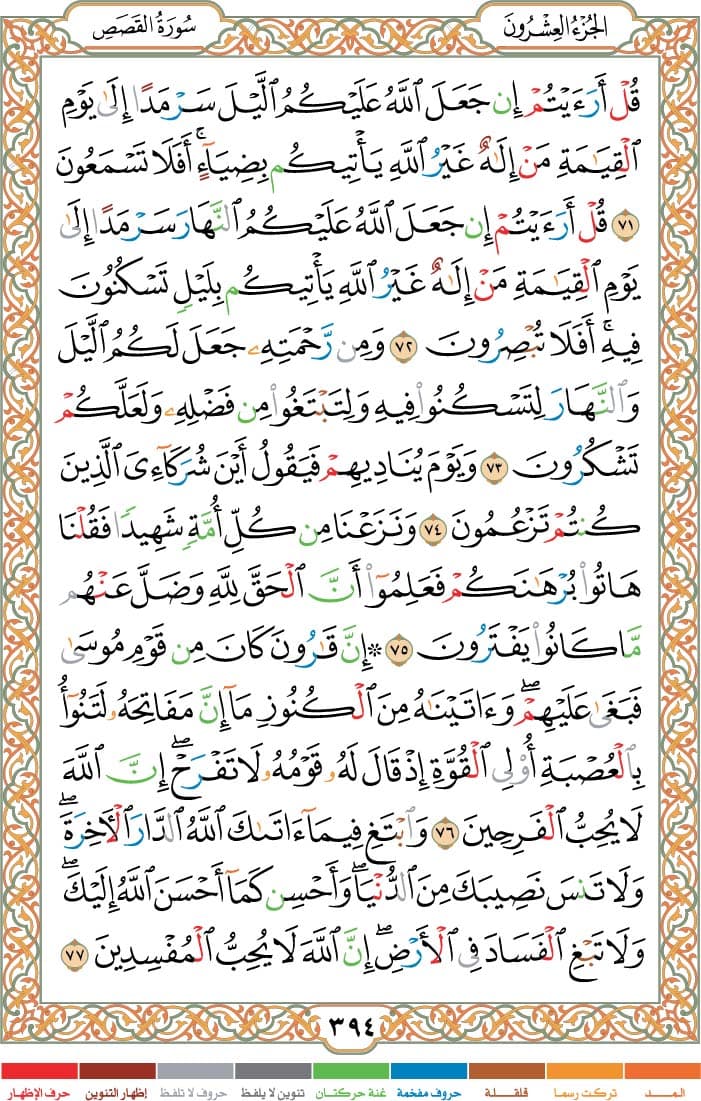 الجُزْءُ العِشْرُونَ
سُورَةُ القَصَصِ
قُلْ أَرَءَيْتُمْ إِن جَعَلَ ٱللَّهُ عَلَيْكُمُ ٱلَّيْلَ سَرْمَدًا إِلَىٰ يَوْمِ
ٱلْقِيَٰمَةِ مَنْ إِلَٰهٌ غَيْرُ ٱللَّهِ يَأْتِيكُم بِضِيَآءٍ ۚ أَفَلَا تَسْمَعُونَ
٧١ قُلْ أَرَءَيْتُمْ إِن جَعَلَ ٱللَّهُ عَلَيْكُمُ ٱلنَّهَارَ سَرْمَدًا إِلَىٰ
يَوْمِ ٱلْقِيَٰمَةِ مَنْ إِلَٰهٌ غَيْرُ ٱللَّهِ يَأْتِيكُم بِلَيْلٍ تَسْكُنُونَ
فِيهِ ۚ أَفَلَا تُبْصِرُونَ ٧٢ وَمِن رَّحْمَتِهِۦ جَعَلَ لَكُمُ ٱلَّيْلَ
وَٱلنَّهَارَ لِتَسْكُنُوا۟ فِيهِ وَلِتَبْتَغُوا۟ مِن فَضْلِهِۦ وَلَعَلَّكُمْ
تَشْكُرُونَ ٧٣ وَيَوْمَ يُنَادِيهِمْ فَيَقُولُ أَيْنَ شُرَكَآءِىَ ٱلَّذِينَ
كُنتُمْ تَزْعُمُونَ ٧٤ وَنَزَعْنَا مِن كُلِّ أُمَّةٍ شَهِيدًا فَقُلْنَا
هَاتُوا۟ بُرْهَٰنَكُمْ فَعَلِمُوٓا۟ أَنَّ ٱلْحَقَّ لِلَّهِ وَضَلَّ عَنْهُم
مَّا كَانُوا۟ يَفْتَرُونَ ٧٥ ۞ إِنَّ قَٰرُونَ كَانَ مِن قَوْمِ مُوسَىٰ
فَبَغَىٰ عَلَيْهِمْ ۖ وَءَاتَيْنَٰهُ مِنَ ٱلْكُنُوزِ مَآ إِنَّ مَفَاتِحَهُۥ لَتَنُوٓأُ
بِٱلْعُصْبَةِ أُو۟لِى ٱلْقُوَّةِ إِذْ قَالَ لَهُۥ قَوْمُهُۥ لَا تَفْرَحْ ۖ إِنَّ ٱللَّهَ
لَا يُحِبُّ ٱلْفَرِحِينَ ٧٦ وَٱبْتَغِ فِيمَآ ءَاتَىٰكَ ٱللَّهُ ٱلدَّارَ ٱلْءَاخِرَةَ ۖ
وَلَا تَنسَ نَصِيبَكَ مِنَ ٱلدُّنْيَا ۖ وَأَحْسِن كَمَآ أَحْسَنَ ٱللَّهُ إِلَيْكَ ۖ
وَلَا تَبْغِ ٱلْفَسَادَ فِى ٱلْأَرْضِ ۖ إِنَّ ٱللَّهَ لَا يُحِبُّ ٱلْمُفْسِدِينَ ٧٧
٣٩٤
المــــد تركت رسما قلقلة حروف مفخمة غنة حركتان تنوين لا يلفظ حروف لا تلفظ إظهار التنوين حرف الإظهار